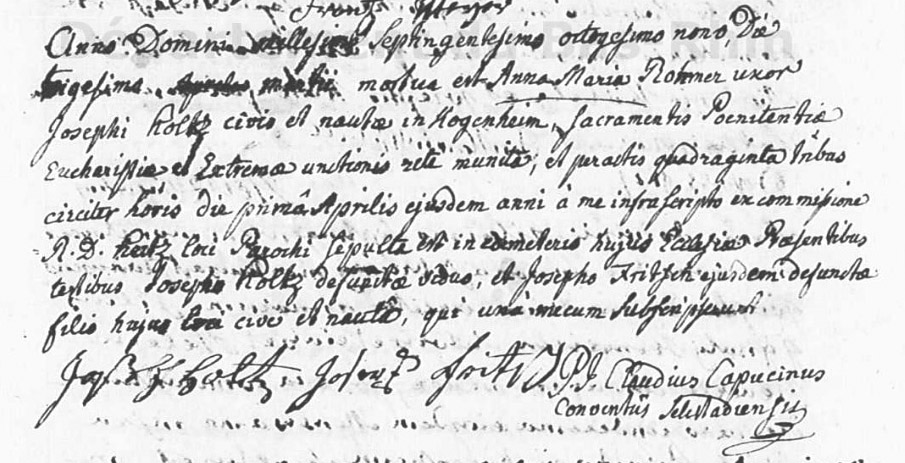 Frantz Meyer
Anno Domini millesimo Septingentesimo octogesimo nono, Die
trigesima martii mortua est Anna Maria Rohmer uxor
Josephi Holtz civis et nautæ in Hogenheim, Sacramentis Poenitentiæ
Eucharistiæ et Extremæ unctionis rite munita, et peractis quadraginta tribus
circiter horis die primâ Aprilis ejusdem anni à me infrascripto ex commissione
R. D. loci Parochi sepulta est in cœmeterio hujus Ecclesiæ Præsentibus
testibus Josepho Holtz defunctæ viduo, et Josepho Fritsch ejusdem defunctæ
filio hujus loci cive et nautâ, qui unà mecum subscripserunt
Joseph Holtz Joseph Fritsch P. J. Claudius Capucinus
Conventûs Selestadiensis